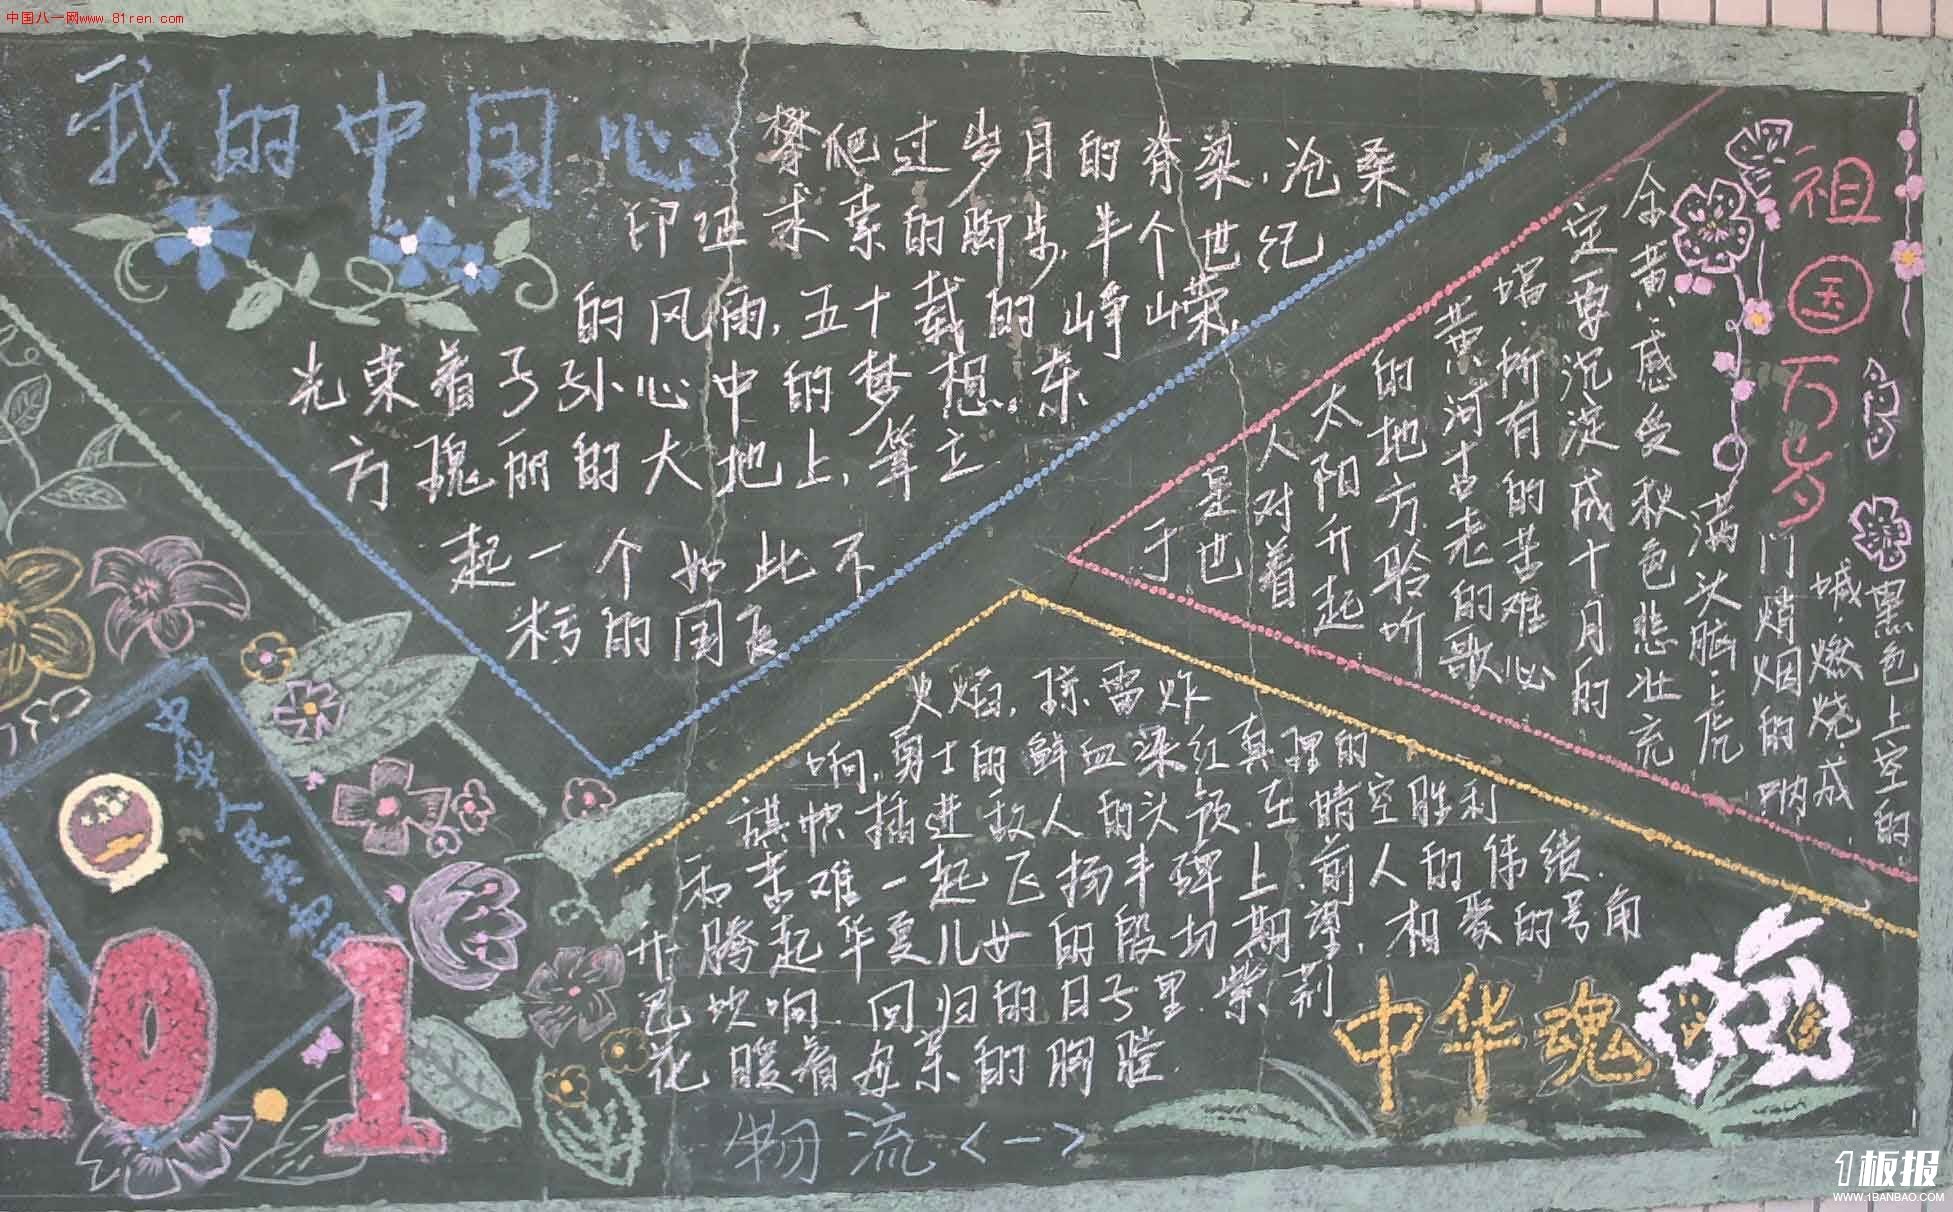 中国八一网www.81ren.com
我的中国心
攀爬过岁月的脊梁,沧桑
印证求索的脚步,半个世纪
的风雨,五十载的峥嵘,
光荣着子孙心中的梦想.东
方瑰丽的大地上,耸立
起一个如此不
朽的国度
祖国万岁
黑色上空的
碱.燃烧.成
门烟的
满头脑.虎
金黄.感受秋色悲壮充
定要沉淀成十月的
.所有的苦难心
黄河古老的歌
的地方聆听
太阳升起
人对着
是世
于
火焰,惊雷炸
响,勇士的鲜血染红真理的
旗帜插进敌人的头颅.在晴空胜利
和苦难一起飞扬丰碑上.前人的伟绩.
升腾起华夏儿女的殷切期望,相聚的号角
已吹响.回归的日子里.紫荆
花暖着母亲的胸膛.
中华魂
物流<一>
中华人民共和国
10 1
1板报
WWW.1BANBAO.COM